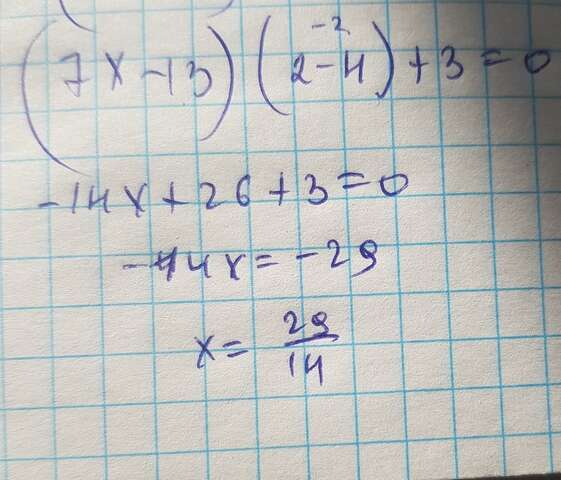 -2
(7x-13)(2-4)+3=0
-14x+26+3=0
-14x=-29
x= 29/14